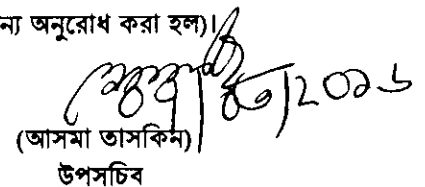 ন্য অনুরোধ করা হল)।
২০১৬
(আসমা তাসকিন)
উপসচিব